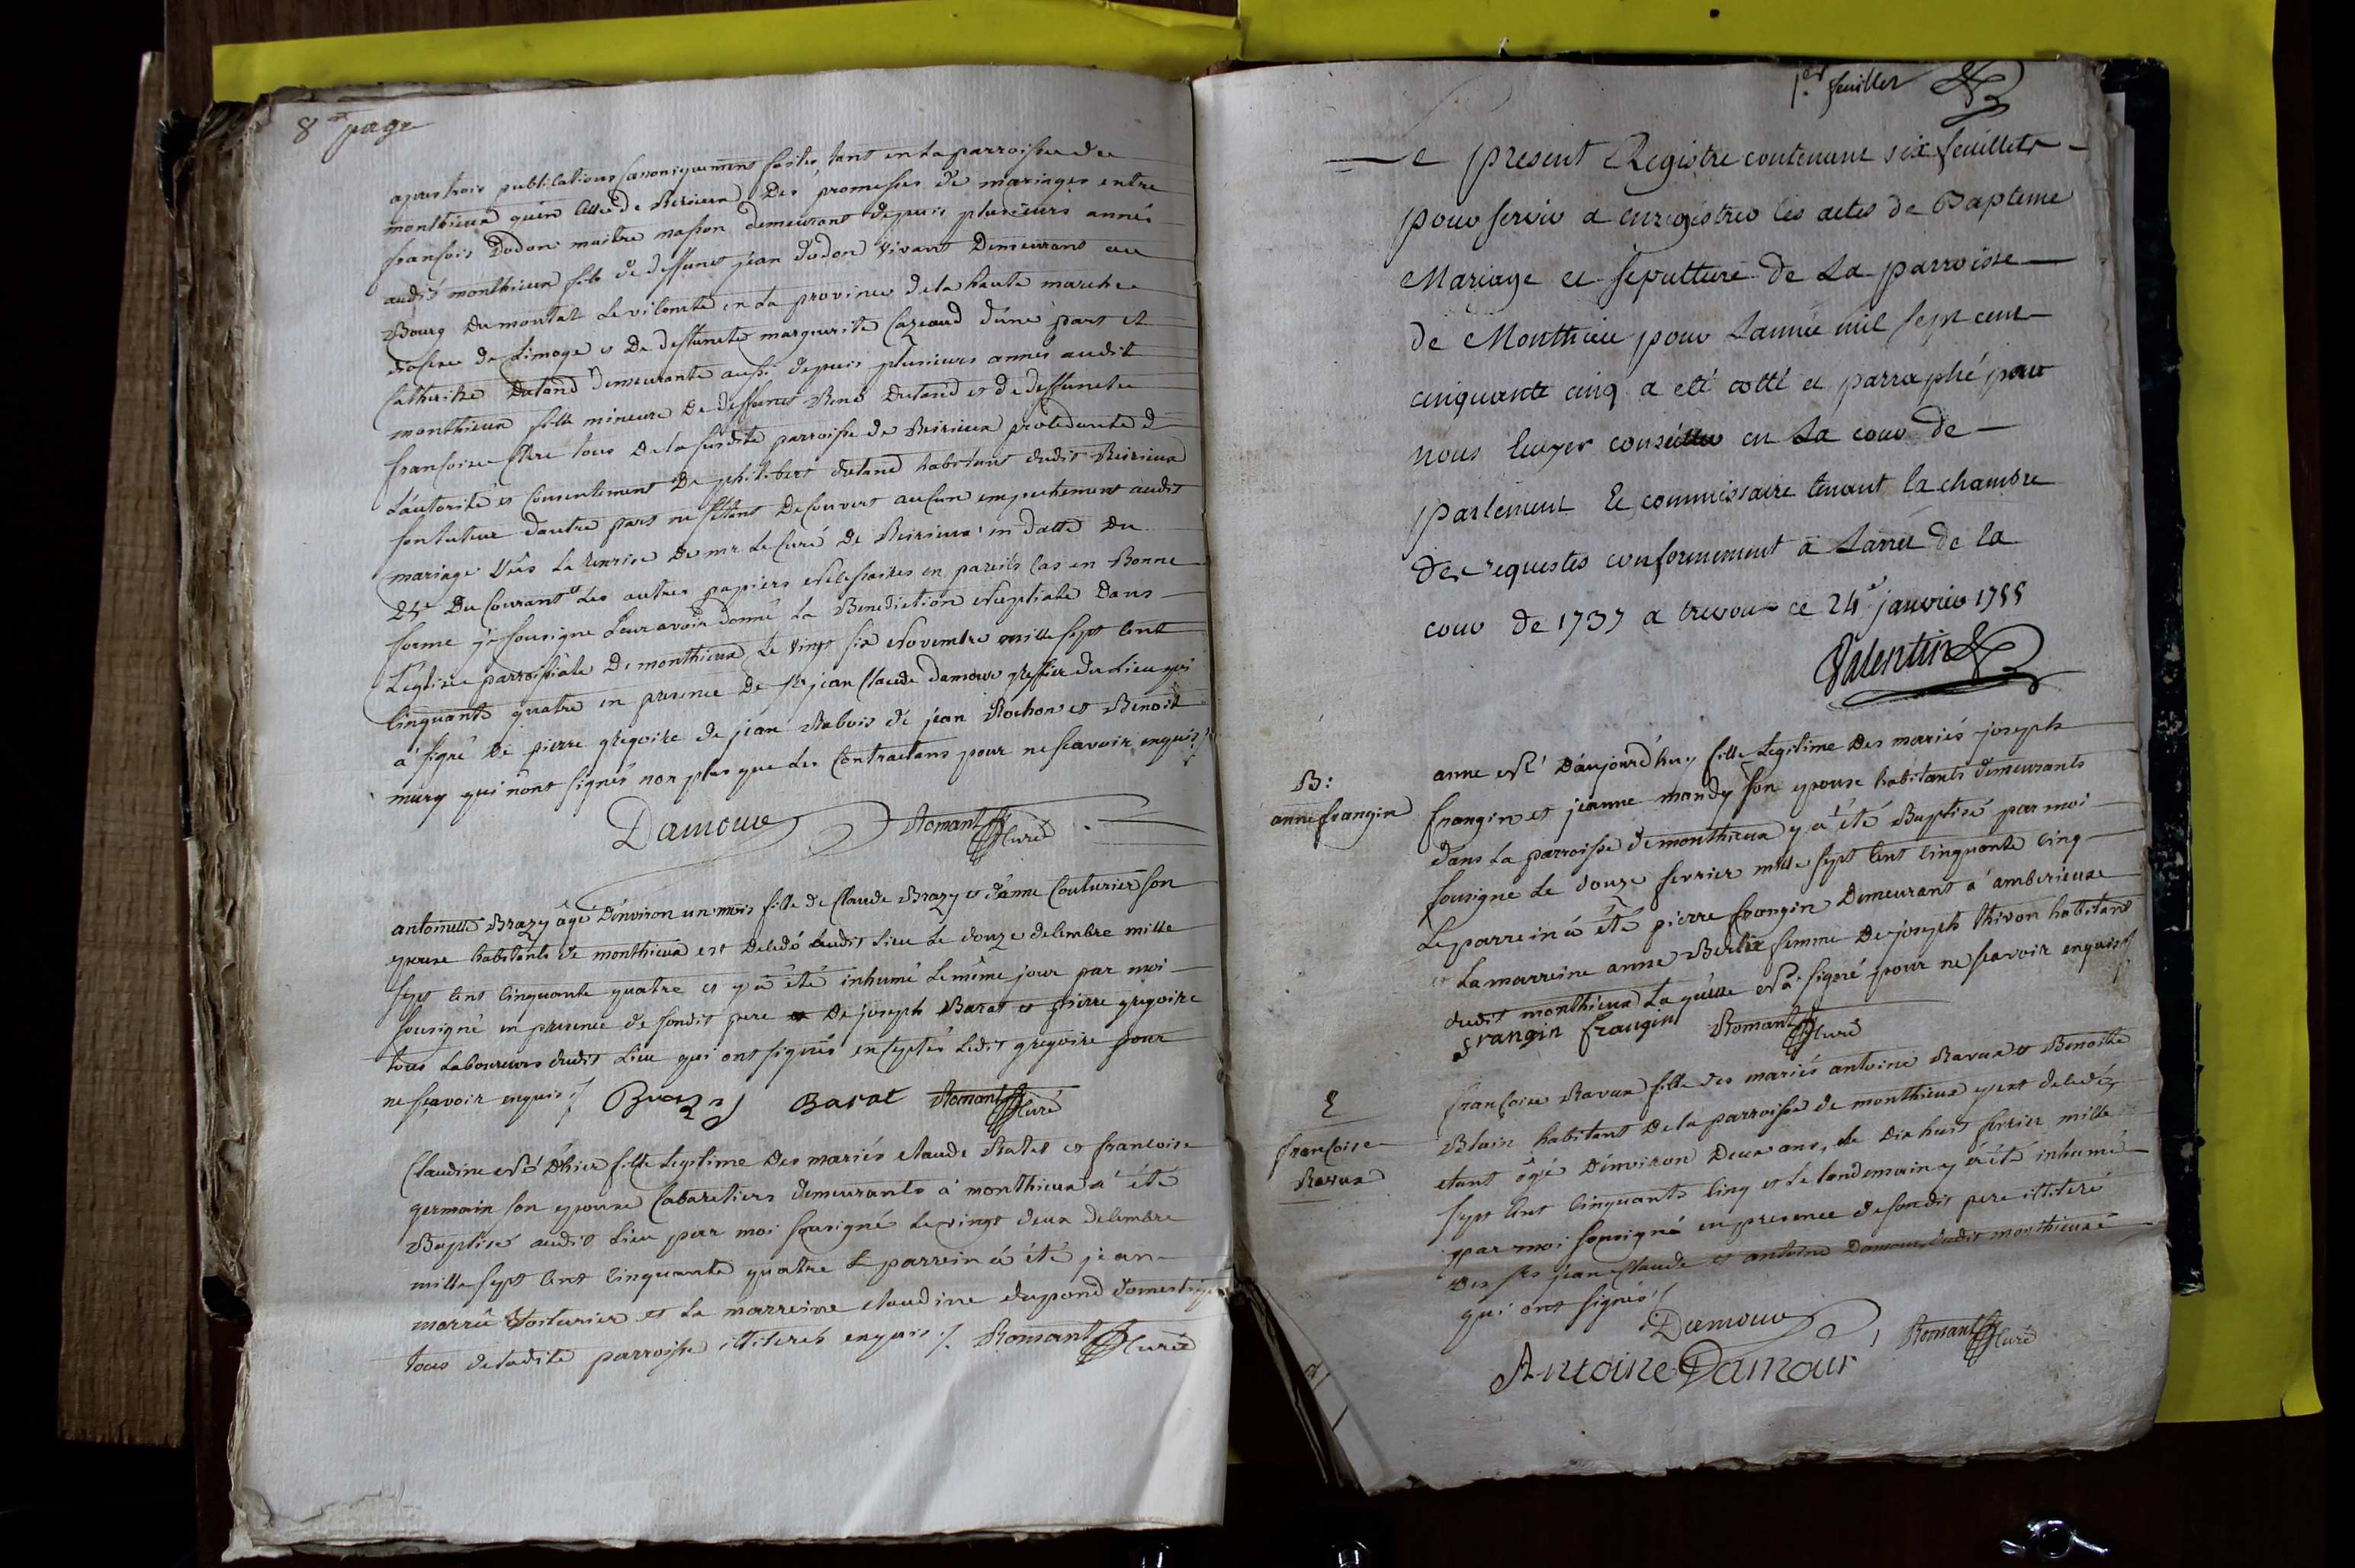 8e page
apres trois publications canoniquement faites tant en la parroisse de
monthieux qu'en celle de Reirieux des promesses de mariages entre
françois Dodon maitre masson demeurant depuis plusieurs années
audit monthieux fils de deffunct jean dodon vivant demeurant au
Bourg du montal le vicomte en la province de la haute marche
diocese de Limoge et de deffuncte marguerite Cazeaud d'une part et
Catherine Dutand demeurante aussi depuis plusieurs années audit
monthieux fille mineure de deffunct René Dutand et de deffuncte
françoise tous de la susdite parroisse de Reirieux procedante de
L'autorité et consentement de philibert dutand habitant dudit Reirieux
son tuteur d'autre part ne s'etant decouvert aucun empechement audit
mariage Vûs la remise de mr Le Curé de Reirieux en datte du
24e du Courant et Les autres papiers necessaires en pareils cas en Bonne
forme je sousigne leur avoir donné La Benediction Nuptiale dans
L'eglise parroissiale de monthieux le vingt six Novembre mille sept cent
cinquante quatre en presence de sr jean Claude Damour greffier du Lieu qui
à signé de pierre gregoire de jean Rabois de jean Rochon et Benoit
mury qui n'ont signés non plus que les Contractans pour ne scavoir enquis ./.
Damour Romant Curé
antoinette Brazy âgé d'environ un mois fille de Claude Brazy et d'anne Couturier son
epouse habitants de monthieux est decedé audit lieu Le douze decembre mille
sept cent cinquante quatre et y à été inhumé le même jour par moi
sousigné en presence de sondit pere et De joseph Barat et pierre gregoire
tous Laboureurs dudit Lieu qui ont signés exceptés Ledit gregoire pour
ne scavoir enquis ./. Brazy Barat Romant Curé
Claudine né d'hier fille Legitime des mariés claude Ratet et francoise
germain son epouse Cabaretiers demeurants à monthieux à été
Baptisé audit Lieu par moi sousigné le vingt deux decembre
mille sept cent cinquante quatre Le parrein à été jean
marrû Voiturier et La marreine claudine dupond domestique
tous de ladite parroisse illiterés enquis ./. Romant Curé
1er feuillet
Le present Registre contenant six feuillets
pour servir a enregistrer les actes de Bapteme
Mariage et sepulture de La parroisse
de Monthieu pour Lannée mil sept cent
cinquante cinq a eté cotté et parraphé par
nous Ecuyer conseiller en La cour de
Parlement Et commissaire tenant la chambre
des requestes conformement à Larret de la
cour de 1737 a trevoux ce 24e janvier 1755
Valentin
B:
anne frangin
anne né d'aujourd'huy fille Legitime des mariés joseph
frangin et jeanne mandy son epouse habitants demeurants
dans La parroisse de monthieux y à été Baptisé par moi
sousigné Le douze fevrier mille sept cent cinquante cinq
Le parrein à été pierre frangin demeurant à amberieux
et La marreine anne Berlie femme De joseph thivon habitant
dudit monthieux La quelle n'a signé pour ne scavoir enquis ./.
frangin frangin Romant Curé
E
francoise
Ravux
francoise Ravux fille des mariés antoine Ravux et Benoite
Blain habitant De la parroisse de monthieux y est decedé
etant âgé d'environ Deux ans, Le dix huit fevrier mille
sept cent cinquante cinq et Le landemain y à été inhumé
par moi sousigné en presence de sondit pere illiteré
Des srs jean Claude et antoine Damour dudit monthieux
qui ont signés ./.
Damour Romant Curé
Antoine Damour